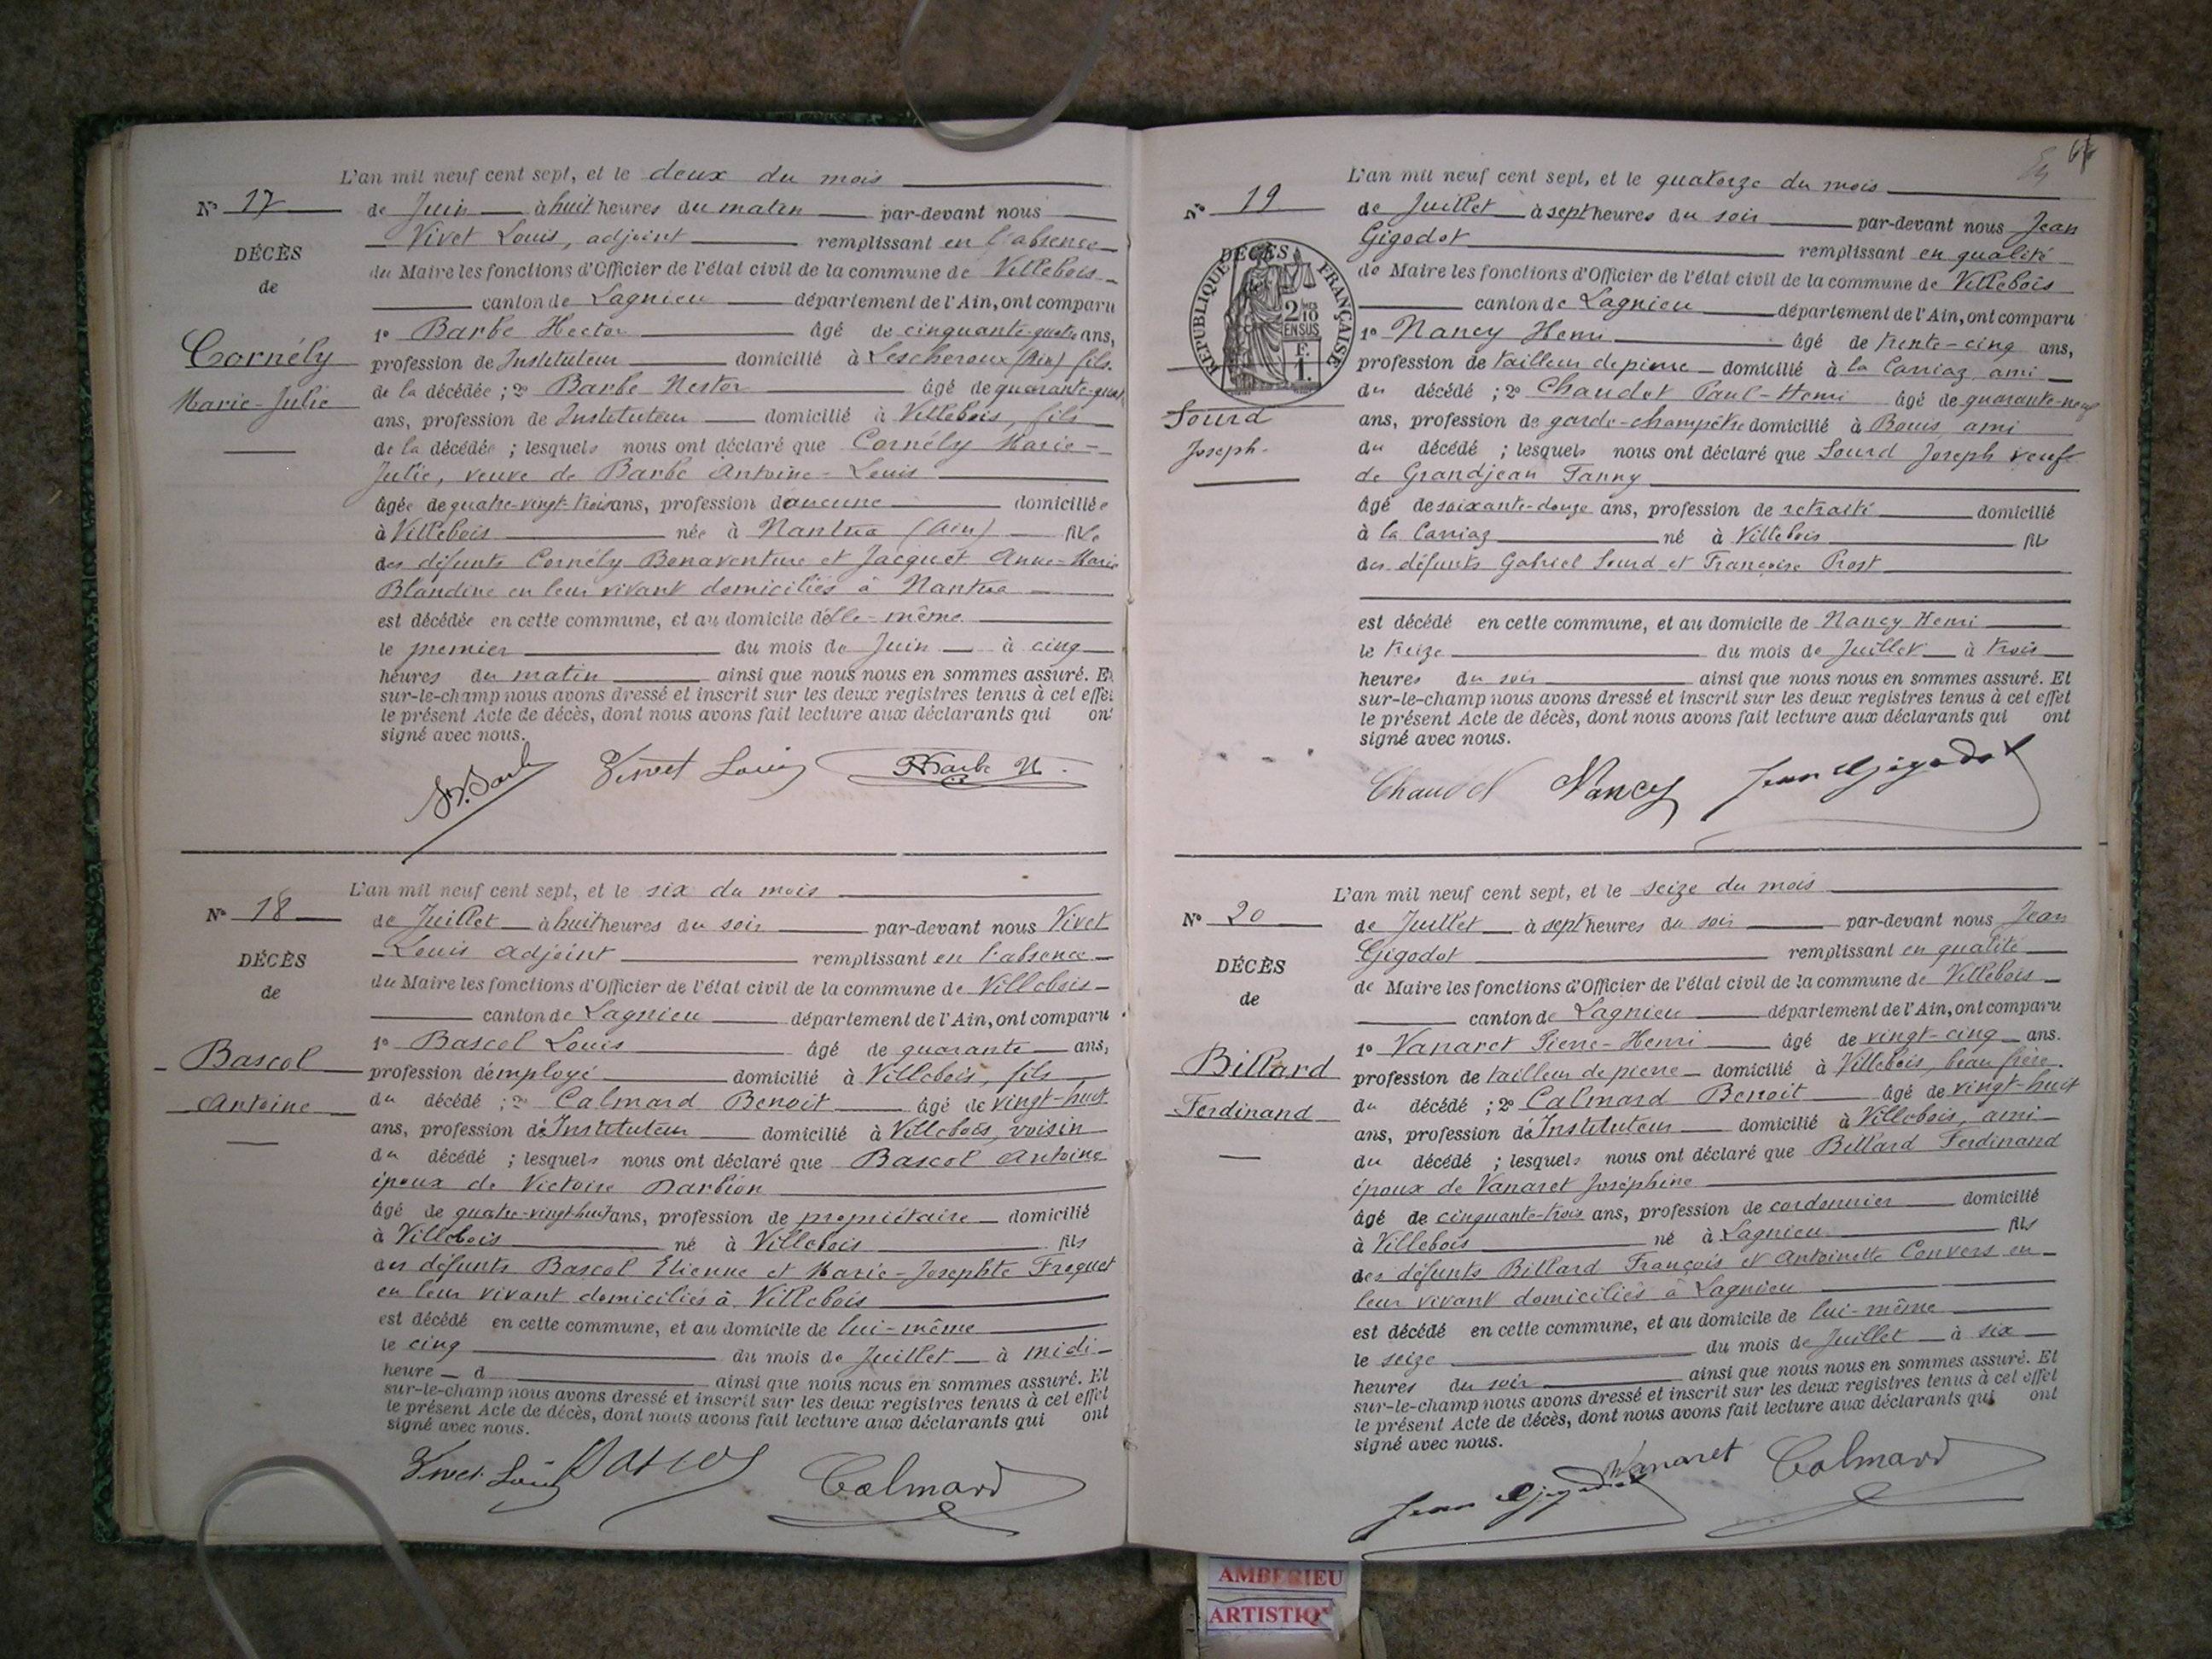 L'an mil neuf cent sept, et le deux du mois
N° 17
de Juin à huit heures du matin par-devant nous
Vivet Louis, adjoint remplissant en l'absence
DÉCÈS
de
du Maire les fonctions d'Officier de l'état civil de la commune de Villebois
canton de Lagnieu département de l'Ain, ont comparu
1° Barbe Hector âgé de cinquante-quatre ans,
Cornély
profession de Instituteur domicilié à Lescheroux (Ain) fils
Marie-Julie
de la décédée ; 2° Barbe Nestor âgé de quarante-quatre
ans, profession de Instituteur domicilié à Villebois, fils
de la décédée ; lesquels nous ont déclaré que Cornély Marie-
Julie, veuve de Barbe Antoine-Louis
âgée de quatre-vingt-trois ans, profession d'aucune domiciliée
à Villebois née à Nantua (Ain) fille
des défunts Cornély Bonaventure et Jacquet Anne-Marie
Blandine en leur vivant domiciliés à Nantua
est décédée en cette commune, et au domicile d'elle-même
le premier du mois de Juin à cinq
heures du matin ainsi que nous nous en sommes assuré. Et
sur-le-champ nous avons dressé et inscrit sur les deux registres tenus à cet effet
le présent Acte de décès, dont nous avons fait lecture aux déclarants qui ont
signé avec nous.
Vivet Louis Barbe N.
L'an mil neuf cent sept, et le six du mois
N° 18
de Juillet à huit heures du soir par-devant nous Vivet
Louis adjoint remplissant en l'absence
DÉCÈS
de
du Maire les fonctions d'Officier de l'état civil de la commune de Villebois
canton de Lagnieu département de l'Ain, ont comparu
1° Bascol Louis âgé de quarante ans,
Bascol
profession d'employé domicilié à Villebois, fils
Antoine
du décédé ; 2° Calmard Benoit âgé de vingt-huit
ans, profession d'Instituteur domicilié à Villebois, voisin
du décédé ; lesquels nous ont déclaré que Bascol Antoine
époux de Victoire Darbion
âgé de quatre-vingt-huit ans, profession de propriétaire domicilié
à Villebois né à Villebois fils
des défunts Bascol Etienne et Marie-Josephte Frequet
en leur vivant domiciliés à Villebois
est décédé en cette commune, et au domicile de lui-même
le cinq du mois de Juillet à midi
heure d ainsi que nous nous en sommes assuré. Et
sur-le-champ nous avons dressé et inscrit sur les deux registres tenus à cet effet
le présent Acte de décès, dont nous avons fait lecture aux déclarants qui ont
signé avec nous.
Vivet Louis Bascol Calmard
L'an mil neuf cent sept, et le quatorze du mois
N° 19
de Juillet à sept heures du soir par-devant nous Jean
Gigodot remplissant en qualité
DÉCÈS
RÉPUBLIQUE FRANÇAISE
2/10 EN SUS
F. 1.
de Maire les fonctions d'Officier de l'état civil de la commune de Villebois
canton de Lagnieu département de l'Ain, ont comparu
1° Nancy Henri âgé de trente-cinq ans,
profession de tailleur de pierre domicilié à la Carriaz ami
Sourd
Joseph
du décédé ; 2° Chaudet Paul-Henri âgé de quarante-neuf
ans, profession de garde-champêtre domicilié à Bouis, ami
du décédé ; lesquels nous ont déclaré que Sourd Joseph veuf
de Grandjean Fanny
âgé de soixante-douze ans, profession de retraité domicilié
à la Carriaz né à Villebois fils
des défunts Gabriel Sourd et Françoise Prost
est décédé en cette commune, et au domicile de Nancy Henri
le treize du mois de Juillet à trois
heures du soir ainsi que nous nous en sommes assuré. Et
sur-le-champ nous avons dressé et inscrit sur les deux registres tenus à cet effet
le présent Acte de décès, dont nous avons fait lecture aux déclarants qui ont
signé avec nous.
Chaudet Nancy Jean Gigodot
L'an mil neuf cent sept, et le seize du mois
N° 20
de Juillet à sept heures du soir par-devant nous Jean
Gigodot remplissant en qualité
DÉCÈS
de
de Maire les fonctions d'Officier de l'état civil de la commune de Villebois
canton de Lagnieu département de l'Ain, ont comparu
1° Vanaret Pierre-Henri âgé de vingt-cinq ans.
Billard
profession de tailleur de pierre domicilié à Villebois, beau frère
Ferdinand
du décédé ; 2° Calmard Benoit âgé de vingt-huit
ans, profession d'Instituteur domicilié à Villebois, ami
du décédé ; lesquels nous ont déclaré que Billard Ferdinand
époux de Vanaret Joséphine
âgé de cinquante-trois ans, profession de cordonnier domicilié
à Villebois né à Lagnieu fils
des défunts Billard François et Antoinette Convers en
leur vivant domiciliés à Lagnieu
est décédé en cette commune, et au domicile de lui-même
le seize du mois de Juillet à six
heures du soir ainsi que nous nous en sommes assuré. Et
sur-le-champ nous avons dressé et inscrit sur les deux registres tenus à cet effet
le présent Acte de décès, dont nous avons fait lecture aux déclarants qui ont
signé avec nous.
Jean Gigodot Vanaret Calmard
AMBERIEU
ARTISTIQ